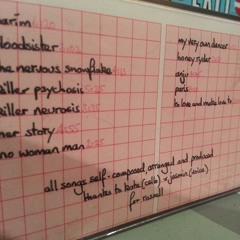 arim
loodsister
he nervous snowflake
killer psychosis 5:25
killer neurosis
her story 4:55
no woman man 2:25
my very own dancer
honey ryder
anju
paris
to love and make love to
all songs self-composed, arranged and produced
thanks to kate (cello) & jasmin (voice)
for russell